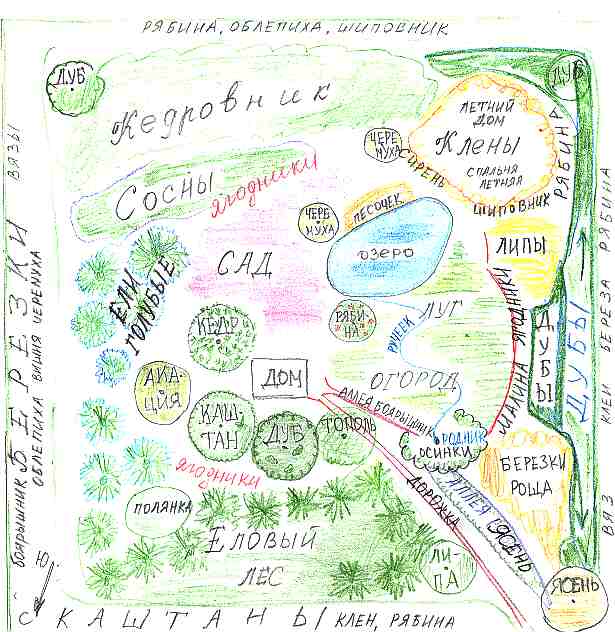 РЯБИНА, ОБЛЕПИХА, ШИПОВНИК
ДУБ
ДУБ
Кедровник
ЛЕТНИЙ
ДОМ
Клены
СПАЛЬНЯ
ЛЕТНЯЯ
ЧЕРЕ
МУХА
СИРЕНЬ
РЯБИНА
ШИПОВНИК
ВЯЗЫ
Сосны
ЯГОДНИКИ
ЧЕРЕ
МУХА
ПЕСОЧЕК
ОЗЕРО
ЛИПЫ
САД
ЕЛИ
ГОЛУБЫЕ
КЕДР
РЯБИ-
НА
ЛУГ
РУЧЕЕК
МАЛИНА
ДУБЫ
ДУБЫ
КЛЕН БЕРЕЗА РЯБИНА
ВЯЗ
БЕРЕЗКИ
БОЯРЫШНИК
ОБЛЕПИХА ВИШНЯ ЧЕРЕМУХА
АКА-
ЦИЯ
ДОМ
ОГОРОД
АЛЛЕЯ БОЯРЫШНИК
КАШ-
ТАН
ДУБ
ТОПОЛЬ
РОДНИК
ОСИНКИ
БЕРЕЗКИ
РОЩА
ЯГОДНИКИ
ПОЛЯНКА
ДОРОЖКА
АЛЛЕЯ ЯСЕНЬ
ЕЛОВЫЙ
ЛЕС
ЛИ-
ПА
ЯСЕНЬ
Ю
С
КАШТАНЫ КЛЕН, РЯБИНА